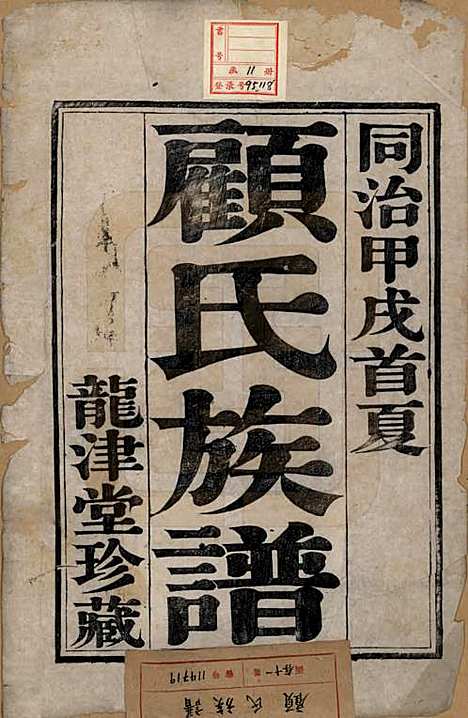 書號
函 11 冊
登录号 95118
同治甲戌首夏
顧氏族譜
龍津堂珍藏
119719
顧氏族譜